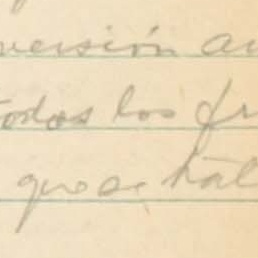 versión au
todos los fr
que se hal